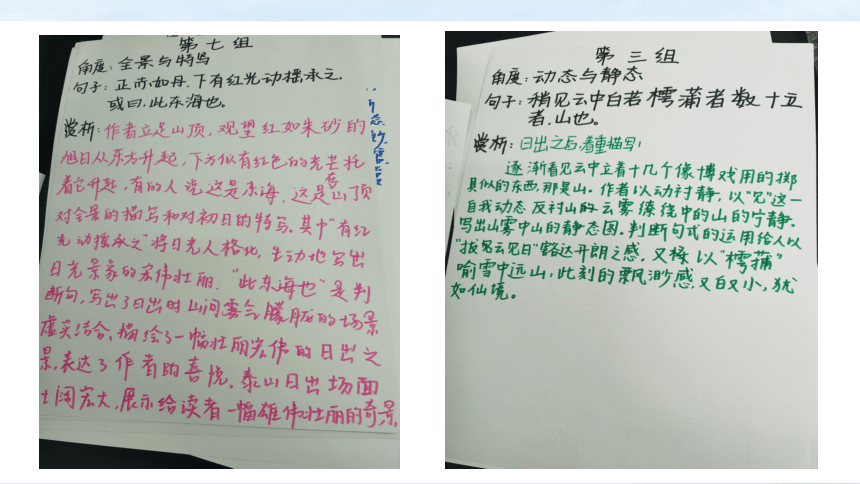 第七组
角度:全景与特写
句子:正赤如丹,下有红光动摇承之.
或曰,此东海也。
赏析:作者立足山顶,观望红如朱砂的
旭日从东方升起,下方似有红色的光芒托
着它升起.有的人说这是东海.这是在山顶
对全景的描写和对初日的特写.其中"有红
光动摇承之"将日光人格化,生动地写出
日光景象的宏伟壮丽."此东海也"是判
断句,写出了日出时山间雾气朦胧的场景
虚实结合、描绘了一幅壮丽宏伟的日出之
景,表达了作者的喜悦、泰山日出场面
壮阔宏大,展示给读者一幅雄伟壮丽的奇景,
第三组
角度:动态与静态
句子:稍见云中白若樗蒱者数十立
者,山也。
赏析:日出之后,着重描写:
逐渐看见云中立着十几个像博戏用的掷
具似的东西,那是山。作者以动衬静,以"见"这一
自我动态反衬山的云雾缭绕中的山的宁静.
写出山雾中山的静态图.判断句式的运用给人以
"拔云见日"豁达开朗之感.又将以"樗蒱"
喻雪中远山,此刻的飘渺感.又白又小,犹
如仙境。